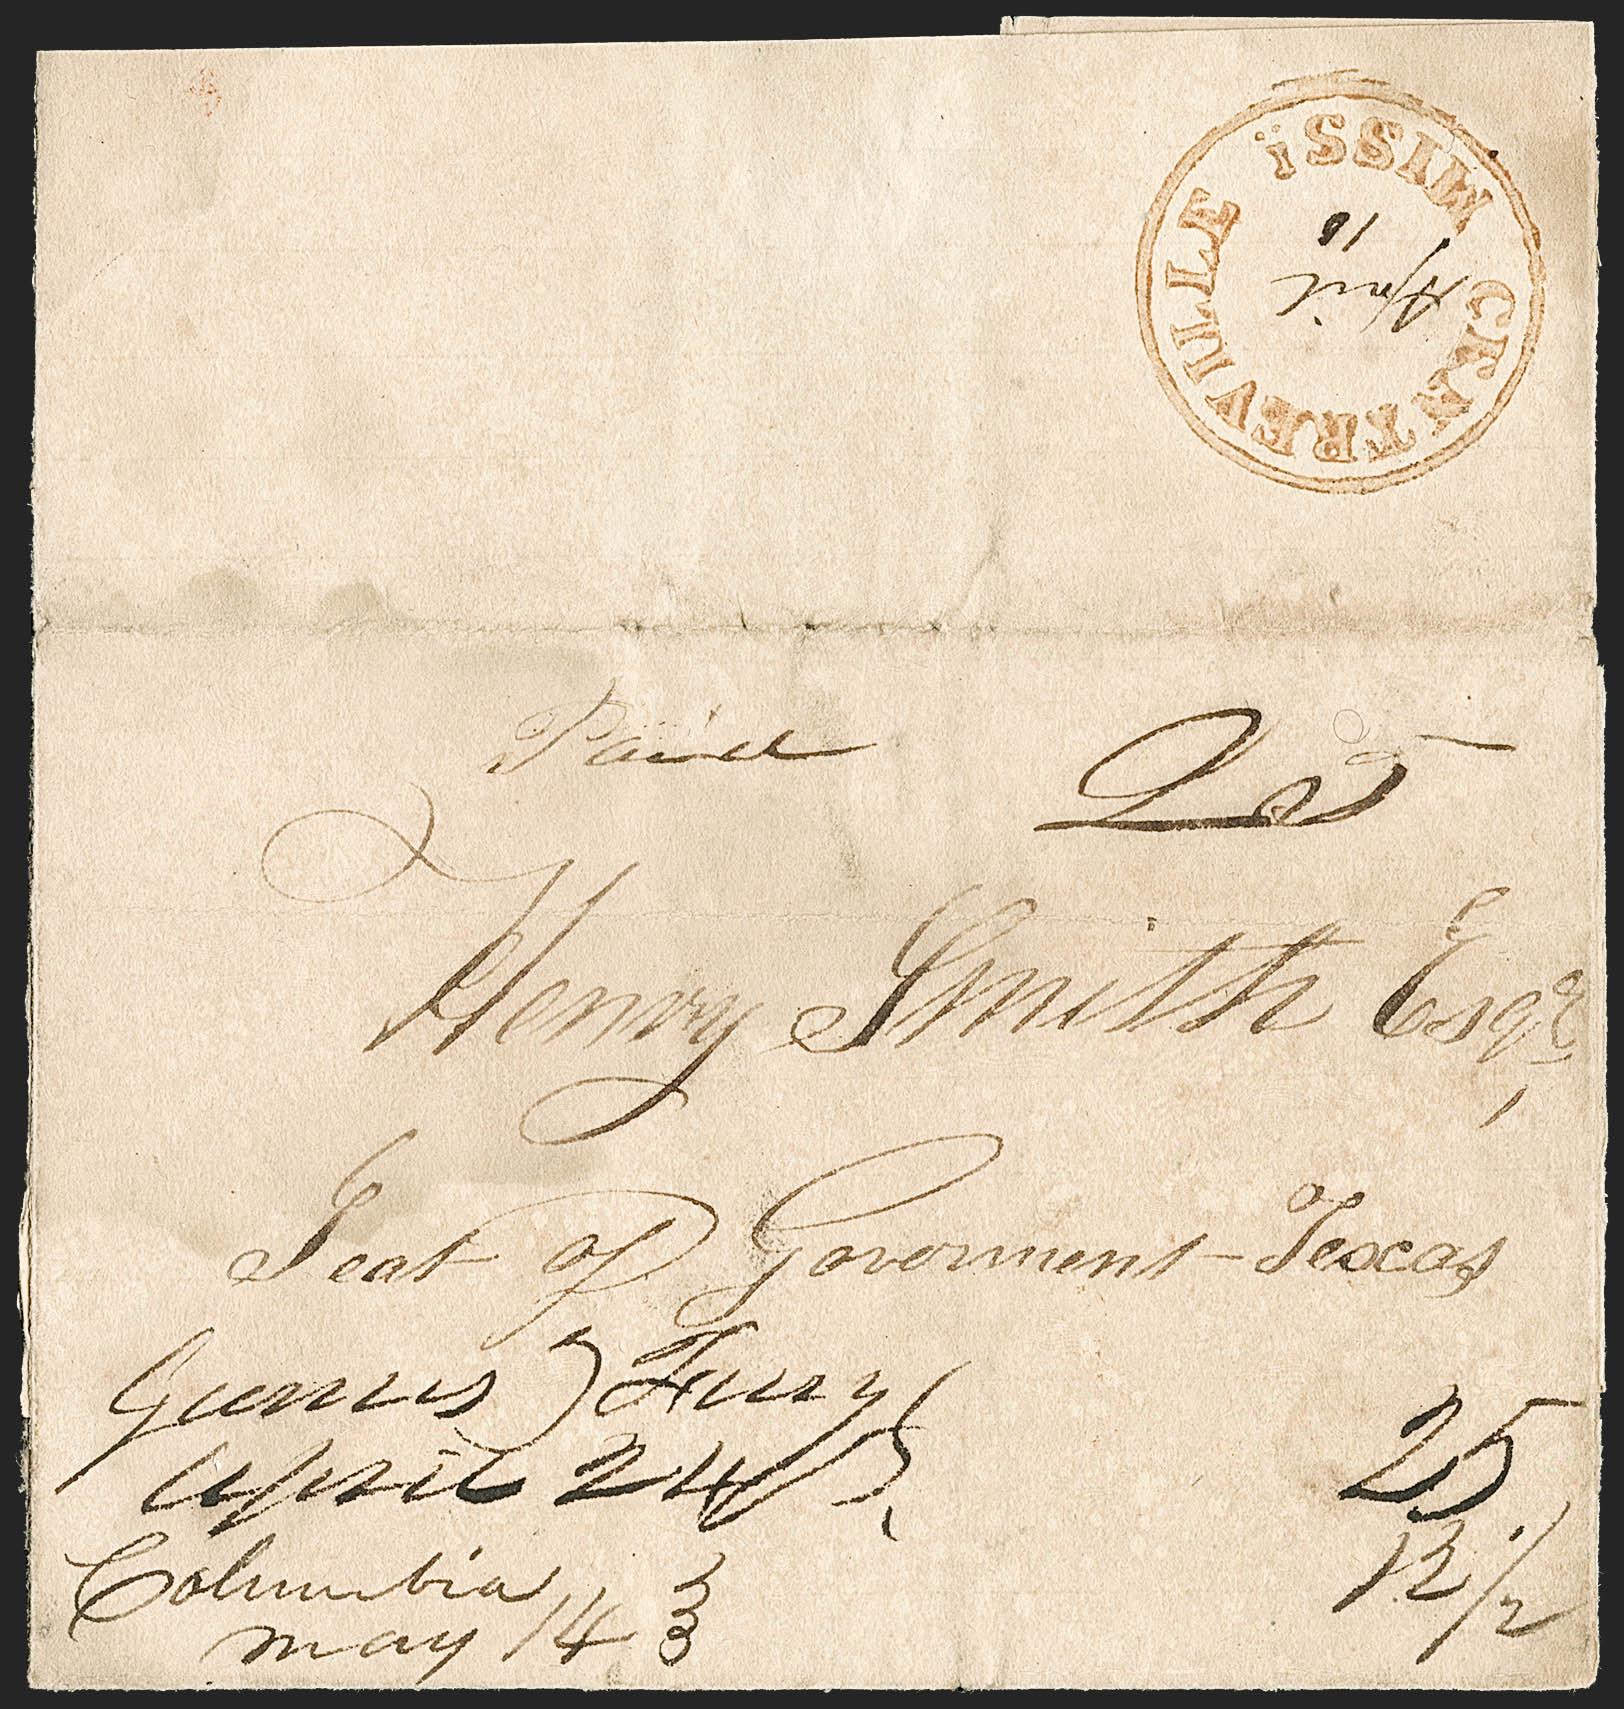 CENTREVILLE MISSi
April
18
Paid 25
Henry Smith Esqr,
Seat of Goverment Texas
Gaines Ferry
April 24 25
Columbia
may 14 12 1/2